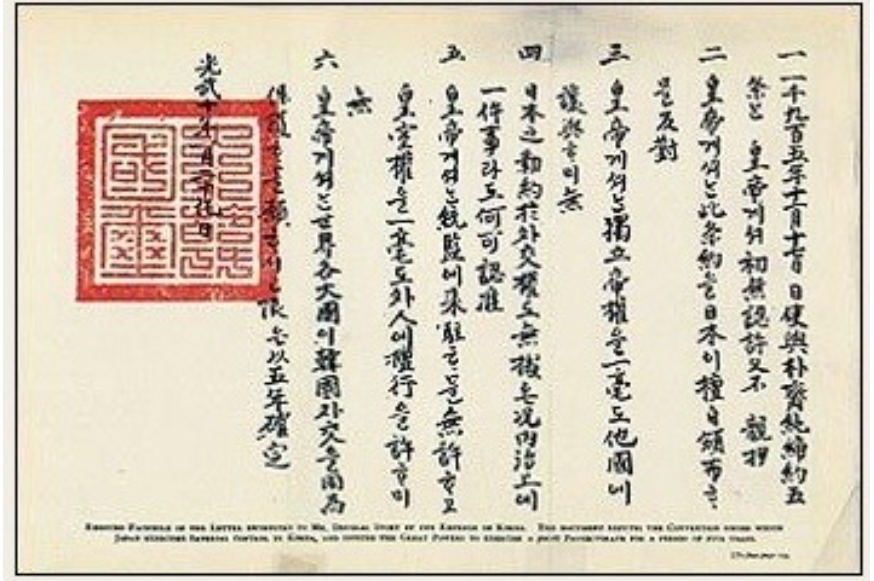 一 一千九百五年十一月十七日 日使與朴齊純締約五
條은 皇帝게셔 初無認許又不 親押
二 皇帝게셔는 此條約을 日本이 擅自頒布ᄒᆞ
믈 反對
三 皇帝게셔는 獨立帝權을 一毫도 他國에
讓與ᄒᆞ미 無
四 日本之勒約於外交權도 無據온 况內治上에
一件事라도 何可認准
五 皇帝게셔는 統監에 來駐ᄒᆞ믈 無許ᄒᆞ고
皇室權을 一毫도 外人에 擅行을 許ᄒᆞ미
無
六 皇帝게셔는 世界各大國이 韓國外交을 同爲
保護ᄒᆞ믈 願ᄒᆞ시 限은 以五年確定
光武十年一月日
Reduced Facsimile of the Letter entrusted to Mr. Douglas Story by the Emperor of Korea. The document refutes the Convention under which
Japan exercises Imperial control in Korea, and invites the Great Powers to exercise a joint Protectorate for a period of five years.